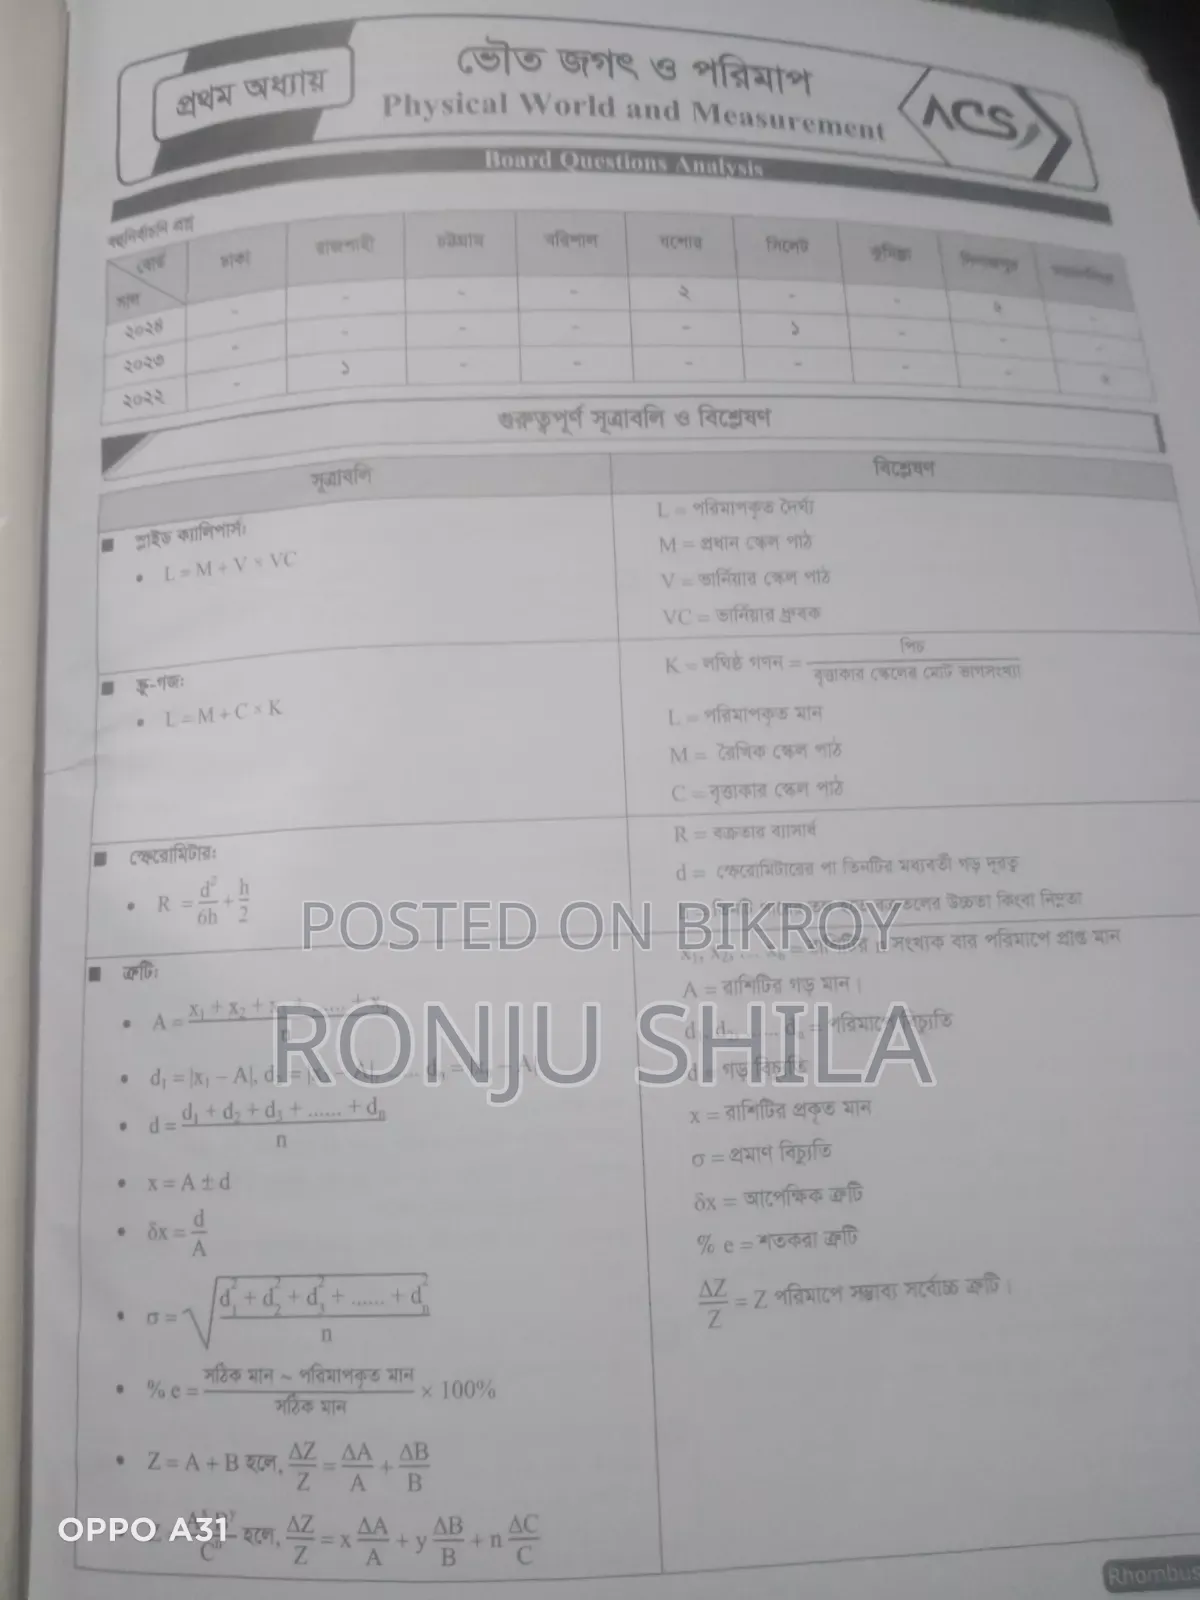 প্রথম অধ্যায়
ভৌত জগৎ ও পরিমাপ
Physical World and Measurement
ACS
Board Questions Analysis
বহুনির্বাচনি প্রশ্ন
বোর্ড
সাল
ঢাকা রাজশাহী চট্টগ্রাম বরিশাল যশোর সিলেট কুমিল্লা দিনাজপুর
২০২৪ - - - - ২ - - -
২০২৩ - - - - - ১ - - -
২০২২ - ১ - - - - - -
গুরুত্বপূর্ণ সূত্রাবলি ও বিশ্লেষণ
সূত্রাবলি বিশ্লেষণ
■ স্লাইড ক্যালিপার্স:
• L = M + V × VC
L = পরিমাপকৃত দৈর্ঘ্য
M = প্রধান স্কেল পাঠ
V = ভার্নিয়ার স্কেল পাঠ
VC = ভার্নিয়ার ধ্রুবক
■ স্ক্রু-গজ:
• L = M + C × K
K = লঘিষ্ঠ গণন = পিচ / বৃত্তাকার স্কেলের মোট ভাগসংখ্যা
L = পরিমাপকৃত মান
M = রৈখিক স্কেল পাঠ
C = বৃত্তাকার স্কেল পাঠ
■ স্ফেরোমিটার:
• R = d²/6h + h/2
R = বক্রতার ব্যাসার্ধ
d = স্ফেরোমিটারের পা তিনটির মধ্যবর্তী গড় দূরত্ব
উচ্চতা কিংবা নিম্নতা
■ ত্রুটি:
• A = x₁ + x₂ + ...... + / n
• d₁ = |x₁ – A|,
• d = d₁ + d₂ + d₃ + ...... + dₙ / n
• x = A ± d
• δx = d/A
• σ = √(d₁² + d₂² + d₃² + ...... + dₙ² / n)
• % e = সঠিক মান ~ পরিমাপকৃত মান / সঠিক মান × 100%
• Z = A + B হলে, ΔZ/Z = ΔA/A + ΔB/B
হলে, ΔZ/Z = x ΔA/A + y ΔB/B + n ΔC/C
সংখ্যক বার পরিমাপে প্রাপ্ত মান
A = রাশিটির গড় মান।
dₙ = পরিমাপে বিচ্যুতি
d = গড় বিচ্যুতি
x = রাশিটির প্রকৃত মান
σ = প্রমাণ বিচ্যুতি
δx = আপেক্ষিক ত্রুটি
% e = শতকরা ত্রুটি
ΔZ/Z = Z পরিমাপে সম্ভাব্য সর্বোচ্চ ত্রুটি।
POSTED ON BIKROY
RONJU SHILA
OPPO A31
Rhombus